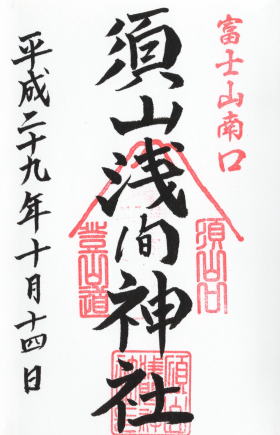 富士山南口
須山浅間神社
須山口
登山道
平成二十九年十月十四日